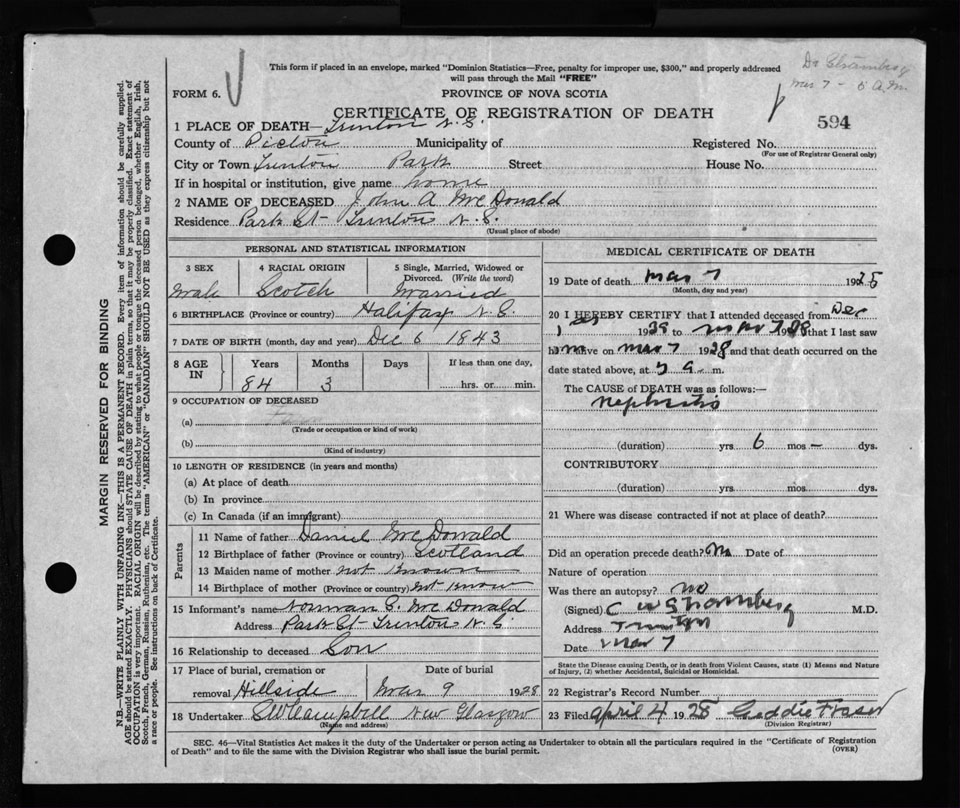 Dr Stramberg
Mar 7 - 5 A.M.
This form if placed in an envelope, marked "Dominion Statistics—Free, penalty for improper use, $300," and properly addressed
will pass through the Mail "FREE"
FORM 6.
PROVINCE OF NOVA SCOTIA
CERTIFICATE OF REGISTRATION OF DEATH
594
1 PLACE OF DEATH— Trenton N.S.
County of Pictou Municipality of Registered No.
(For use of Registrar General only)
City or Town Trenton Park Street House No.
If in hospital or institution, give name home
2 NAME OF DECEASED John A McDonald
Residence Park St Trenton N.S.
(Usual place of abode)
PERSONAL AND STATISTICAL INFORMATION
3 SEX 4 RACIAL ORIGIN 5 Single, Married, Widowed or
Divorced. (Write the word)
Male Scotch Married
6 BIRTHPLACE (Province or country) Halifax N.S.
7 DATE OF BIRTH (month, day and year) Dec 6 1843
8 AGE IN Years Months Days If less than one day,
84 3 hrs. or min.
9 OCCUPATION OF DECEASED
(a)
(Trade or occupation or kind of work)
(b)
(Kind of industry)
10 LENGTH OF RESIDENCE (in years and months)
(a) At place of death
(b) In province
(c) In Canada (if an immigrant)
Parents
11 Name of father Daniel McDonald
12 Birthplace of father (Province or country) Scotland
13 Maiden name of mother not known
14 Birthplace of mother (Province or country) not know
15 Informant's name Norman S. McDonald
Address Park St Trenton N.S.
16 Relationship to deceased Son
17 Place of burial, cremation or Date of burial
removal Hillside Mar 9 1928
18 Undertaker SW Campbell New Glasgow
(Name and address)
MEDICAL CERTIFICATE OF DEATH
19 Date of death Mar 7 1928
(Month, day and year)
20 I HEREBY CERTIFY that I attended deceased from Dec
to Mar 7 1928 that I last saw
him alive on Mar 7 1928 and that death occurred on the
date stated above, at 5 a.m.
The CAUSE of DEATH was as follows:—
Nephritis
(duration) yrs 6 mos — dys.
CONTRIBUTORY
(duration) yrs. mos. dys.
21 Where was disease contracted if not at place of death?
Did an operation precede death? No Date of
Nature of operation
Was there an autopsy? no
(Signed) C W Stramberg M.D.
Address Trenton
Date Mar 7
State the Disease causing Death, or in death from Violent Causes, state (1) Means and Nature
of Injury, (2) whether Accidental, Suicidal or Homicidal.
22 Registrar's Record Number
23 Filed April 4 1928 Fraser
(Division Registrar)
SEC. 46—Vital Statistics Act makes it the duty of the Undertaker or person acting as Undertaker to obtain all the particulars required in the "Certificate of Registration
of Death" and to file the same with the Division Registrar who shall issue the burial permit. (OVER)
MARGIN RESERVED FOR BINDING
N.B.—WRITE PLAINLY WITH UNFADING INK—THIS IS A PERMANENT RECORD. Every item of information should be carefully supplied.
AGE should be stated EXACTLY. PHYSICIANS should STATE CAUSE OF DEATH in plain terms, so that it may be properly classified. Exact statement of
OCCUPATION is very important. RACIAL ORIGIN will be described by stating to what people or tongue the deceased person belonged, whether English, Irish,
Scotch, French, German, Russian, Ruthenian, etc. The terms "AMERICAN" or "CANADIAN" SHOULD NOT BE USED as they express citizenship but not
a race or people. See instructions on back of Certificate.